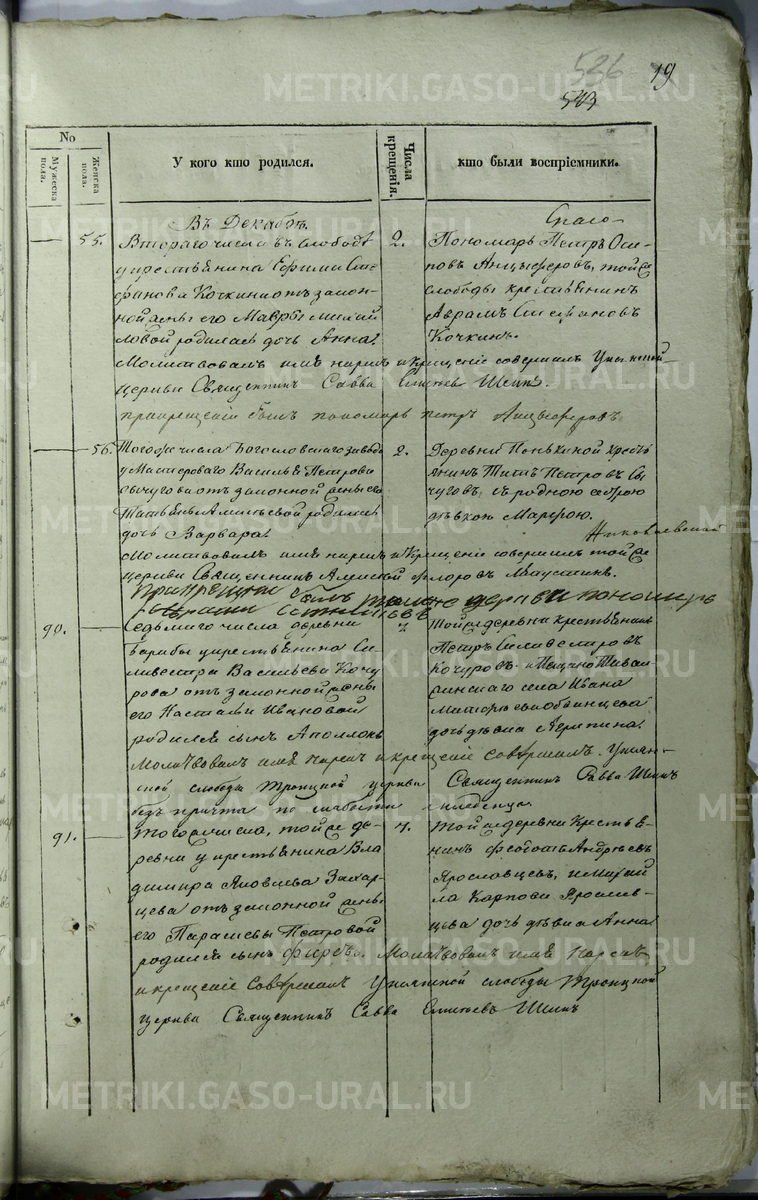 536 19
543
№
Мужеска пола.
Женска пола.
У кого кто родился.
Числа крещенія.
кто были воспріемники.
Въ Декабрѣ
55. Втораго числа въ слободѣ
у крестьянина Ефима Сте
фанова Кочкина отъ закон-
ной жены его Мавры Михай
ловой родилась дочь Анна.
2.
Спасо-
Пономарь Петръ Оси-
повъ Анцыферовъ, той же
слободы крестьянинъ
Аврамъ Степановъ
Кочкинъ.
Молитвовалъ имя нарекъ и крещеніе совершилъ
церкви Священникъ Савва Шеинъ.
при крещеніи былъ пономарь петръ Анцыферовъ
56. Того же числа Богословскаго завода
у Мастероваго Василья Петрова
Сычугова отъ законной жены его
Татьяны родилась
дочь Варвара.
2.
Деревни Конькиной кресть
янинъ Титъ Петровъ Сы
чуговъ, съ родною сестрою
дѣвкою Марфою.
Николаевской
Молитвовалъ имя нарекъ и крещеніе совершилъ той же
церкви Священникъ Алексѣй Флоровъ
При крещеніи былъ тоя же церкви пономарь
90. Седьмаго числа деревни
у крестьянина Си
ливестра Васильева Кочу
рова отъ законной жены
его Настасьи Ивановой
родился сынъ Аполлонъ
7
Той же деревни крестьянинъ
Петръ Силивестровъ
Кочуровъ.
села Ивана
дочь дѣвка Агрипина.
Молитвовалъ имя нарекъ и крещеніе совершилъ.
ской слободы Троицкой церкви Священникъ Савва Шеинъ
безъ причта по слабости младенца.
91. Того числа, той же де
ревни у крестьянина Вла
димира Яковлева Захар
цева отъ законной жены
его Парасковьи Петровой
родился сынъ Фирсъ. Молитвовалъ имя нарекъ
7.
Той же деревни Крестья
нинъ Федотъ Андреевъ
Ярославцевъ, и Михай
ла Карпова Ярослав-
цева дочь дѣвка Анна
и крещеніе совершилъ слободы Троицкой
церкви Священникъ Савва Шеинъ
METRIKI.GASO-URAL.RU